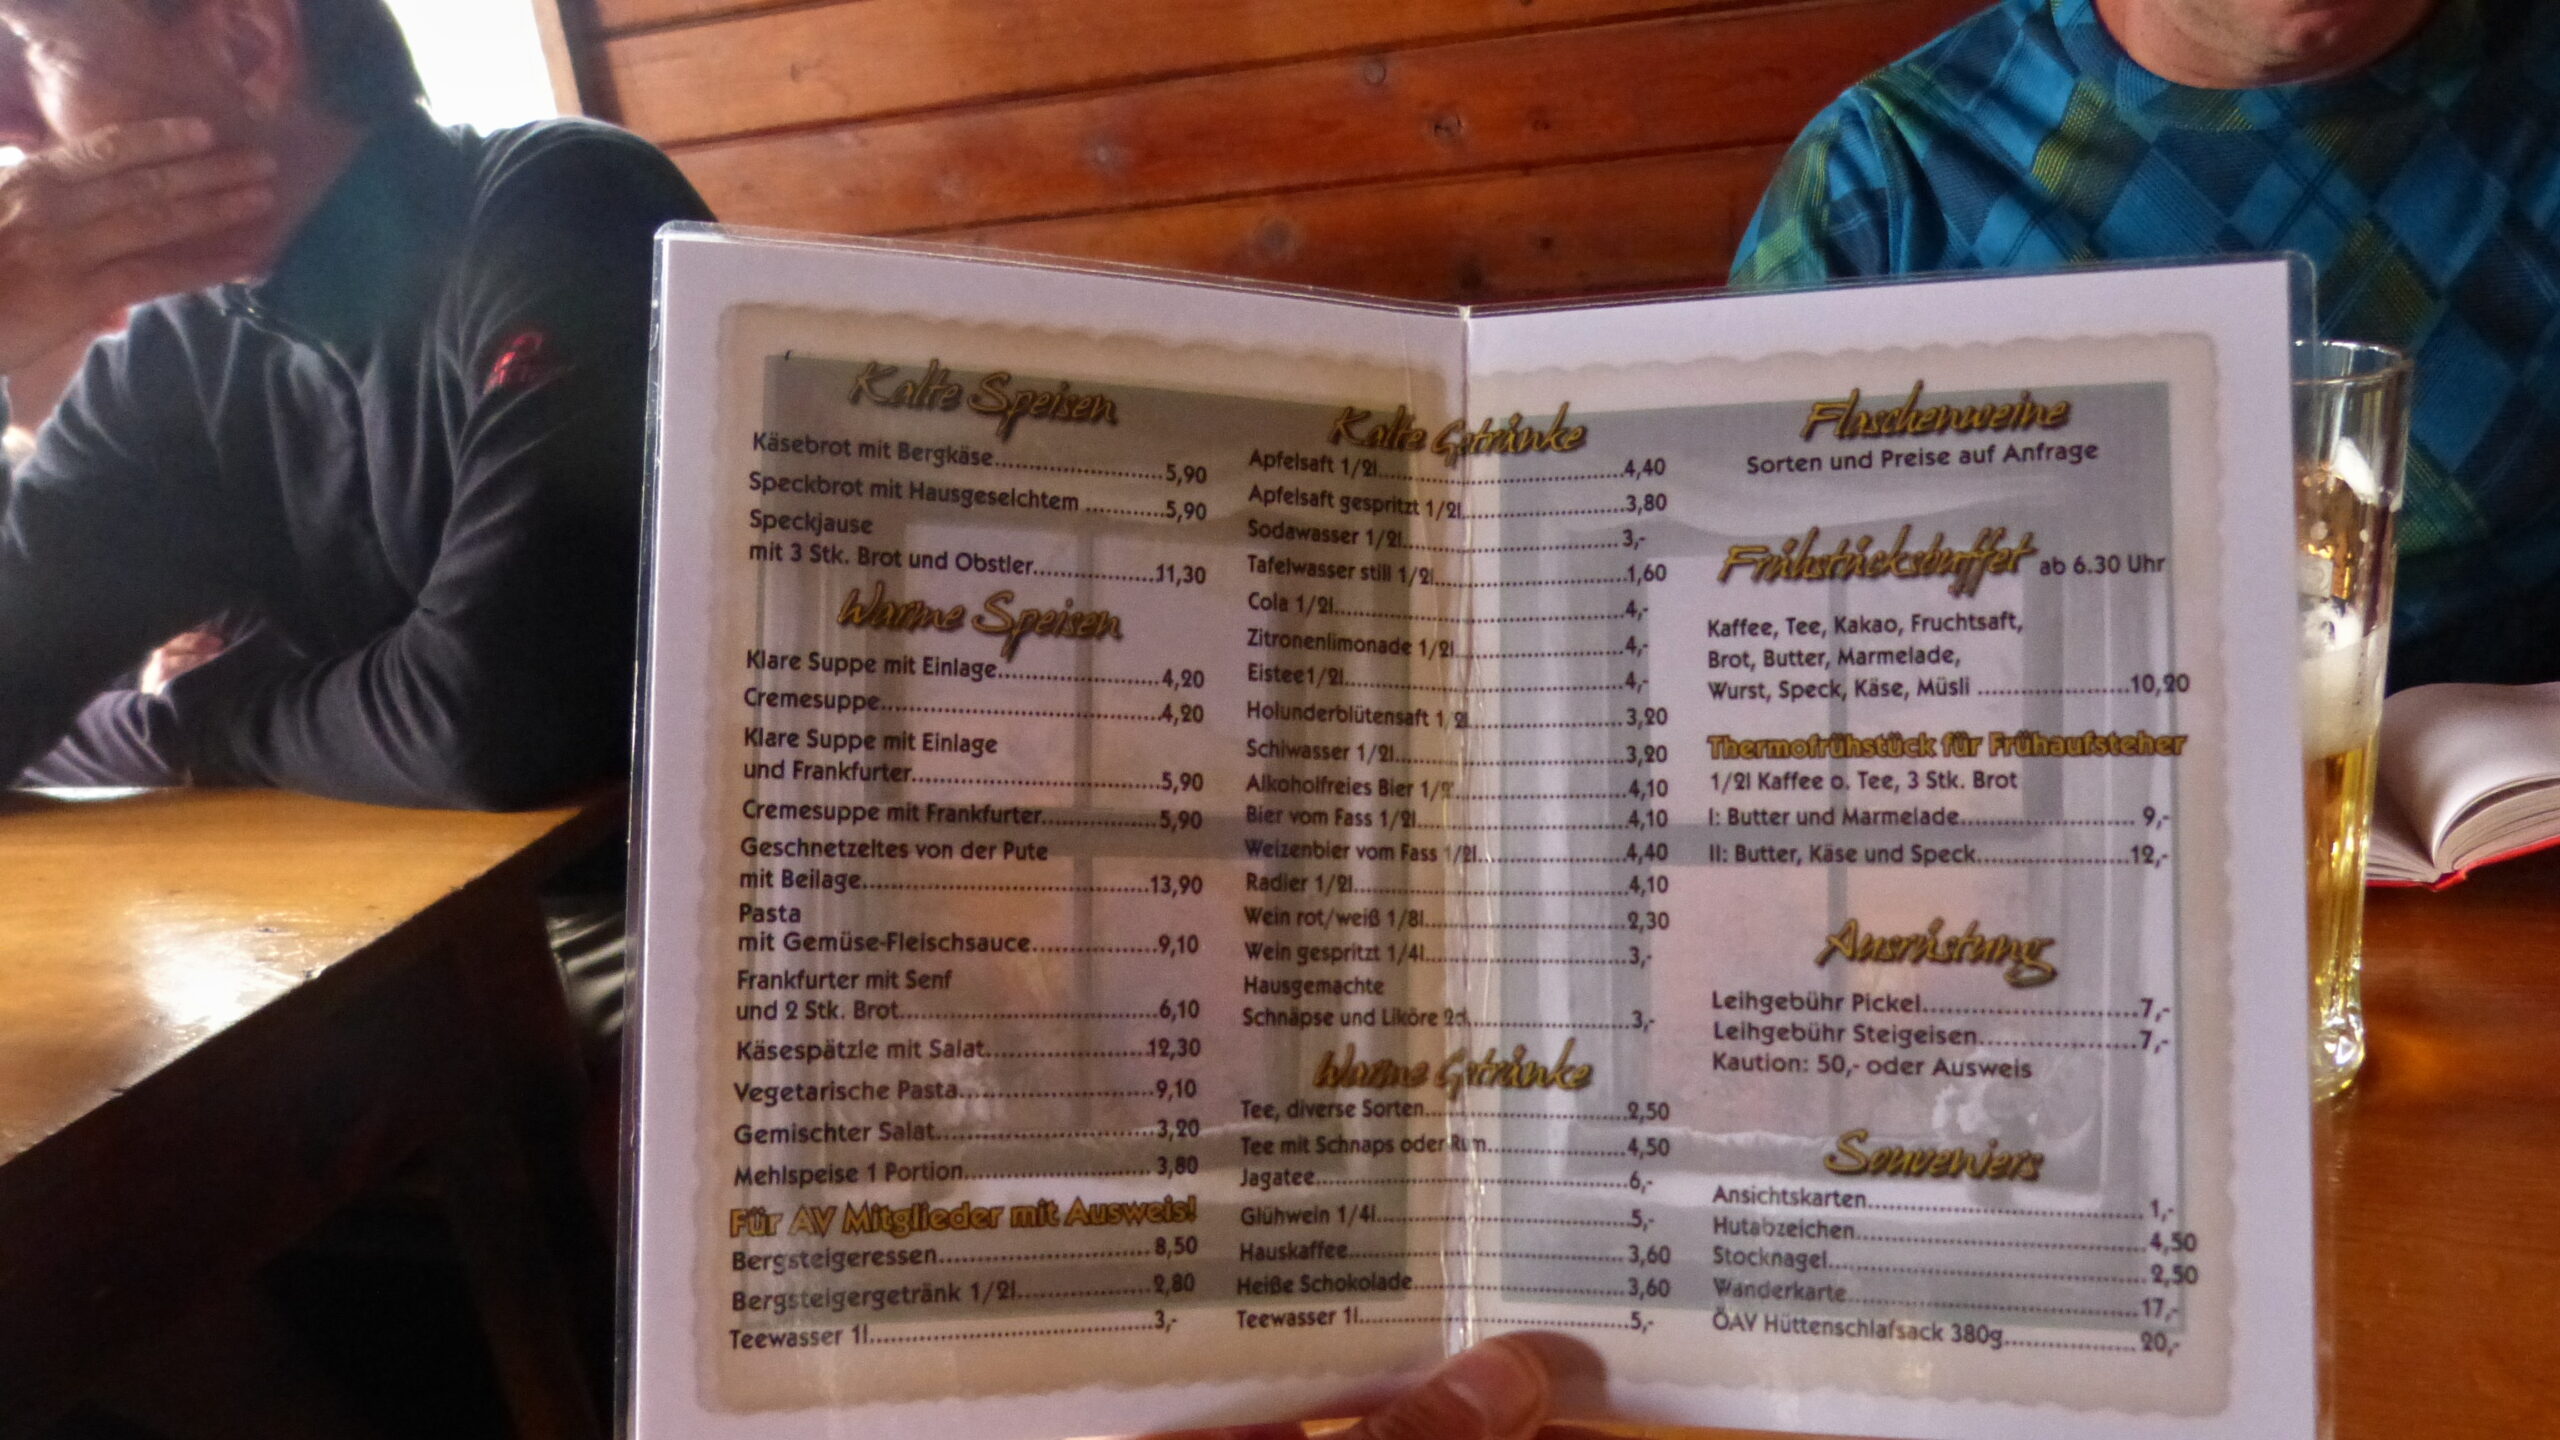 Kalte Speisen
Käsebrot mit Bergkäse..................5,90
Speckbrot mit Hausgeselchtem............5,90
Speckjause
mit 3 Stk. Brot und Obstler..................11,30
Warme Speisen
Klare Suppe mit Einlage..................4,20
Cremesuppe..................4,20
Klare Suppe mit Einlage
und Frankfurter..................5,90
Cremesuppe mit Frankfurter..................5,90
Geschnetzeltes von der Pute
mit Beilage..................13,90
Pasta
mit Gemüse-Fleischsauce..................9,10
Frankfurter mit Senf
und 2 Stk. Brot..................6,10
Käsespätzle mit Salat..................12,30
Vegetarische Pasta..................9,10
Gemischter Salat..................3,20
Mehlspeise 1 Portion..................3,80
Für AV Mitglieder mit Ausweis!
Bergsteigeressen..................8,50
Bergsteigergetränk 1/2l..................2,80
Teewasser 1l..................3,-
Kalte Getränke
Apfelsaft 1/2l..................4,40
Apfelsaft gespritzt 1/2l..................3,80
Sodawasser 1/2l..................3,-
Tafelwasser still 1/2l..................1,60
Cola 1/2l..................4,-
Zitronenlimonade 1/2l..................4,-
Eistee1/2l..................4,-
Holunderblütensaft 1/2l..................3,20
Schiwasser 1/2l..................3,20
Alkoholfreies Bier 1/2l..................4,10
Bier vom Fass 1/2l..................4,10
Weizenbier vom Fass 1/2l..................4,40
Radler 1/2l..................4,10
Wein rot/weiß 1/8l..................2,30
Wein gespritzt 1/4l..................3,-
Hausgemachte
Schnäpse und Liköre 2cl..................3,-
Warme Getränke
Tee, diverse Sorten..................2,50
Tee mit Schnaps oder Rum..................4,50
Jagatee..................6,-
Glühwein 1/4l..................5,-
Hauskaffee..................3,60
Heiße Schokolade..................3,60
Teewasser 1l..................5,-
Flaschenweine
Sorten und Preise auf Anfrage
Frühstücksbuffet ab 6.30 Uhr
Kaffee, Tee, Kakao, Fruchtsaft,
Brot, Butter, Marmelade,
Wurst, Speck, Käse, Müsli ..................10,20
Thermofrühstück für Frühaufsteher
1/2l Kaffee o. Tee, 3 Stk. Brot
I: Butter und Marmelade..................9,-
II: Butter, Käse und Speck..................12,-
Ausrüstung
Leihgebühr Pickel..................7,-
Leihgebühr Steigeisen..................7,-
Kaution: 50,- oder Ausweis
Souveniers
Ansichtskarten..................1,-
Hutabzeichen..................4,50
Stocknagel..................2,50
Wanderkarte..................17,-
ÖAV Hüttenschlafsack 380g..................20,-